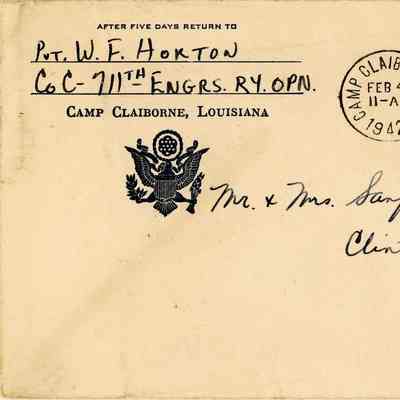 AFTER FIVE DAYS RETURN TO
Pvt. W. F. HORTON
Co C - 711TH ENGRS. RY. OPN.
CAMP CLAIBORNE, LOUISIANA
CAMP CLAIB
FEB 4
11-A
194
Mr. & Mrs.
Clin